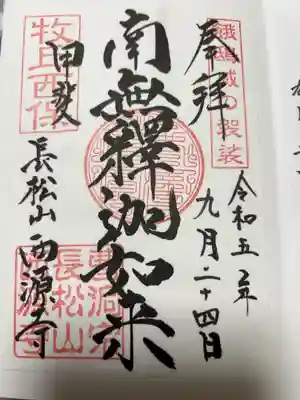 城の袈裟
奉拝
令和五年
九月二十四日
南無釋迦如来
牧丘西保
甲斐
長松山西源寺
曹洞宗
長松山
西源寺